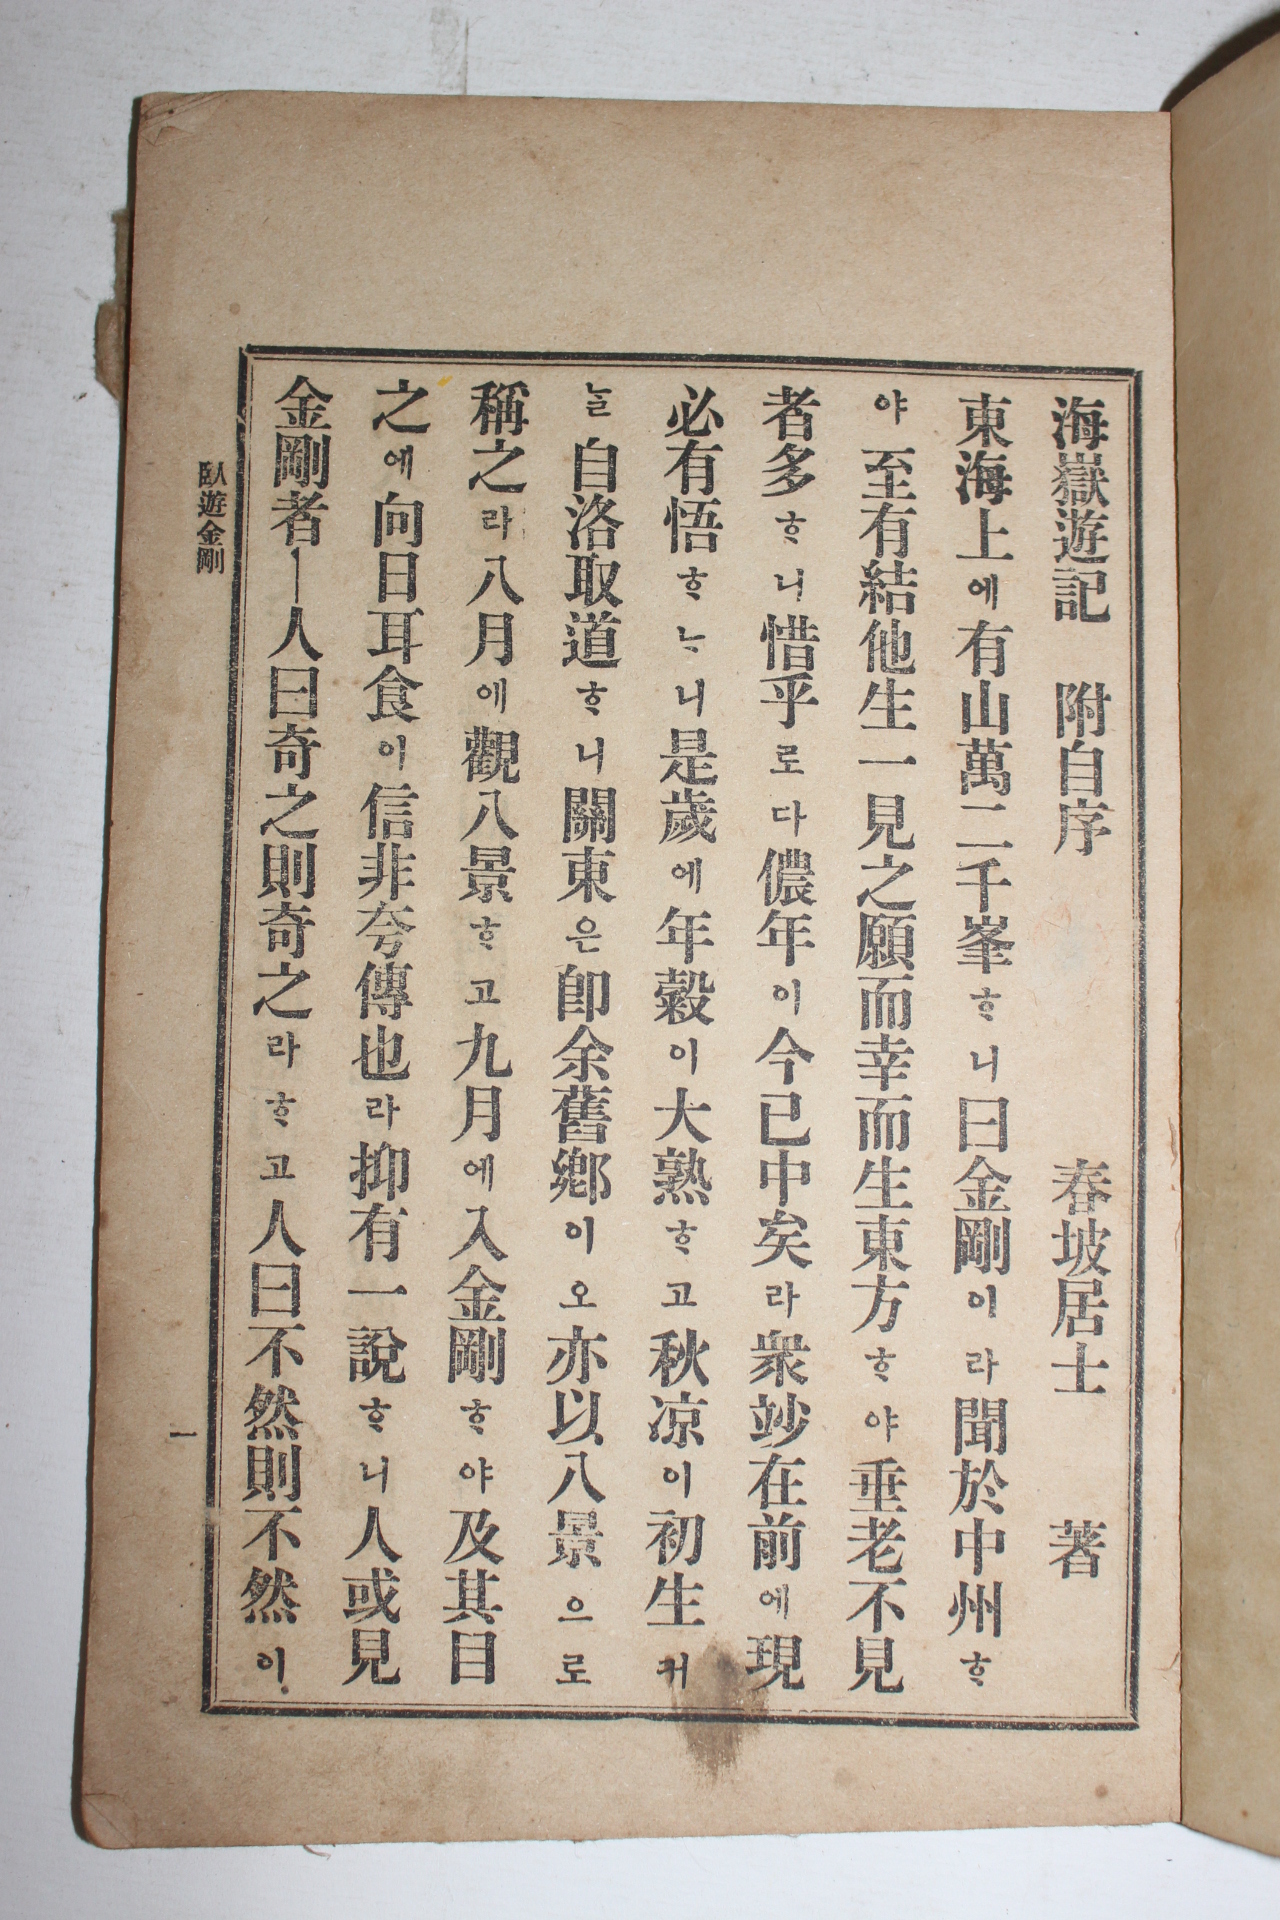 海嶽遊記 附自序 春坡居士 著
東海上에有山萬二千峯ᄒᆞ니曰金剛이라聞於中州ᄒᆞ
야至有結他生一見之願而幸而生東方ᄒᆞ야垂老不見
者多ᄒᆞ니惜乎로다儂年이今已中矣라衆竗在前에現
必有悟ᄒᆞᄂᆞ니是歲에年糓이大熟ᄒᆞ고秋凉이初生커
ᄂᆞᆯ自洛取道ᄒᆞ니關東은卽余舊鄕이오亦以八景으로
稱之라八月에觀八景ᄒᆞ고九月에入金剛ᄒᆞ야及其目
之에向日耳食이信非夸傳也라抑有一說ᄒᆞ니人或見
金剛者ㅣ人曰奇之則奇之라ᄒᆞ고人曰不然則不然이.
臥遊金剛
一